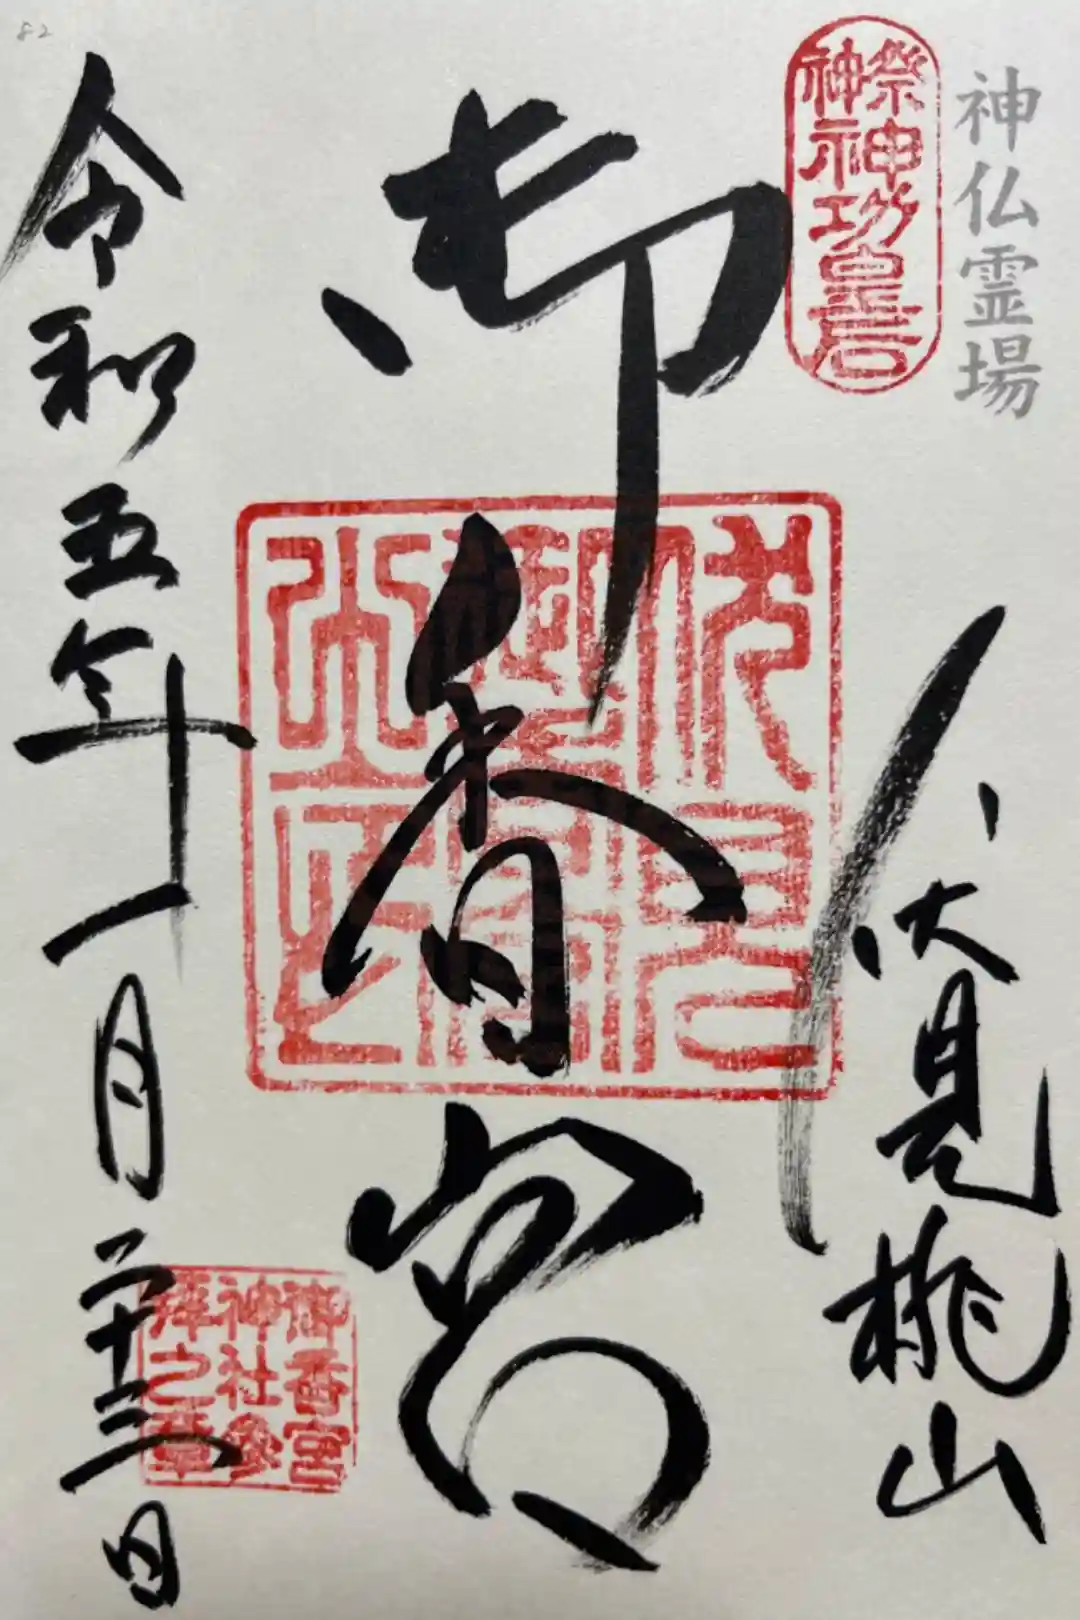 82
神仏霊場
祭神
神功皇后
伏見桃山
御香宮
御香宮
神社参
拝之章
令和五年一月二十三日